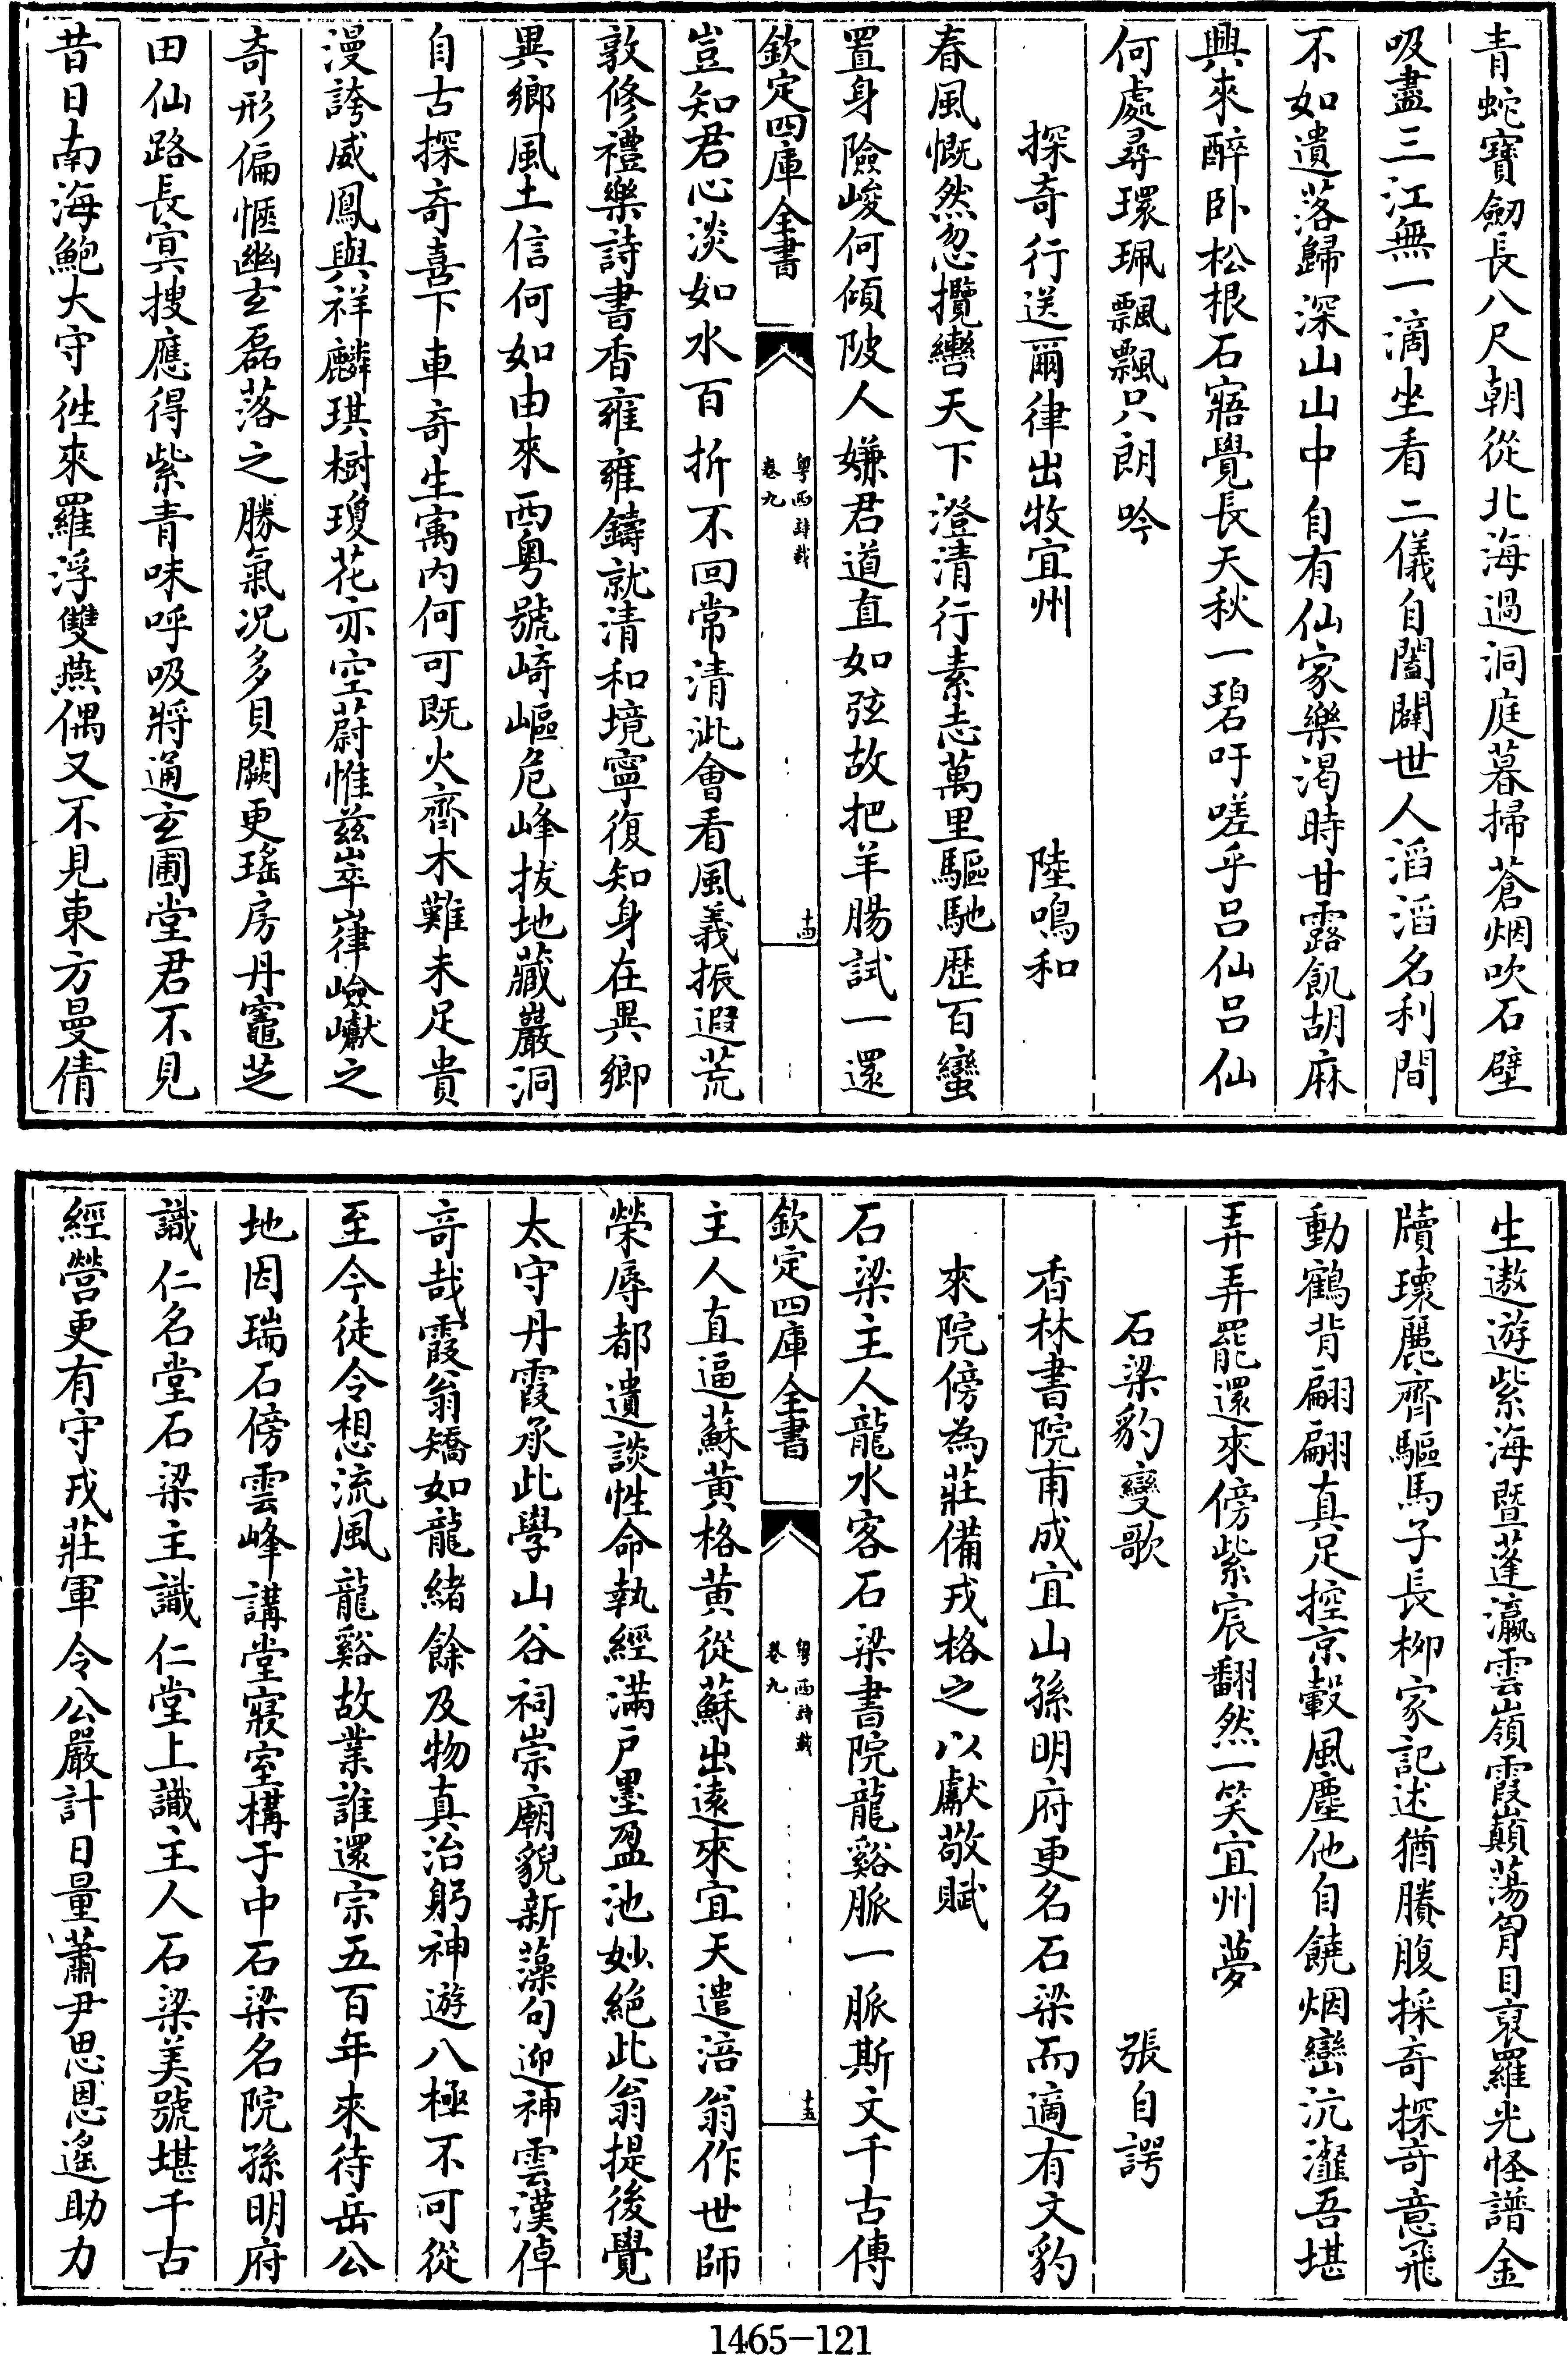 青蛇寶劒長八尺朝從北海過洞庭暮掃蒼烟吹石壁
吸盡三江無一滴坐看二儀自闔闢世人滔滔名利間
不如遺落歸深山山中自有仙家樂渴時甘露飢胡麻
興來醉卧松根石寤覺長天秋一碧吁嗟乎吕仙吕仙
何處尋環珮飄飄只朗吟
探奇行送爾律出牧宜州 陸鳴和
春風慨然忽攬轡天下澄清行素志萬里驅馳歷百蠻
置身險峻何傾陂人嫌君道直如弦故把羊腸試一還
欽定四庫全書 粤西詩載 卷九 十四
豈知君心淡如水百折不回常清泚會看風義振遐荒
敦修禮樂詩書香雍雍鑄就清和境寧復知身在異鄉
異鄉風土信何如由來西粤號崎嶇危峰拔地藏巖洞
自古探奇喜下車奇生寓内何可既火齊木難未足貴
漫誇威鳳與祥麟琪樹瓊花亦空蔚惟兹崒嵂嶮巘之
奇形偏愜幽玄磊落之勝氣况多貝闕更瑤房丹竈芝
田仙路長㝠搜應得紫青味呼吸將通玄圃堂君不見
昔日南海鮑大守徃來羅浮雙燕偶又不見東方曼倩
生遨遊紫海暨蓬瀛雲嶺霞巔蕩胷目裒羅光怪譜金
牘瓌麗齊驅馬子長柳家記述猶賸腹採奇探奇意飛
動鶴背翩翩真足控京轂風塵他自饒烟巒沆瀣吾堪
弄弄罷還來傍紫宸翻然一笑宜州夢
石梁豹變歌 張自諤
香林書院甫成宜山孫明府更名石梁而適有文豹
來院傍為莊備戎格之以獻敬賦
石梁主人龍水客石梁書院龍谿脈一脈斯文千古傳
欽定四庫全書 粤西詩載 卷九 十五
主人直逼蘇黄格黄從蘇出遠來宜天遣涪翁作世師
榮辱都遺談性命執經滿戸墨盈池妙絶此翁提後覺
太守丹霞承此學山谷祠崇廟貌新藻句迎神雲漢倬
竒哉霞翁矯如龍緒餘及物真治躬神遊八極不可從
至今徒令想流風龍谿故業誰還宗五百年來待岳公
地因瑞石傍雲峰講堂寢室構于中石梁名院孫明府
識仁名堂石梁主識仁堂上識主人石梁美號堪千古
經營更有守戎莊軍令公嚴計日量蕭尹思恩遙助力
1465-121